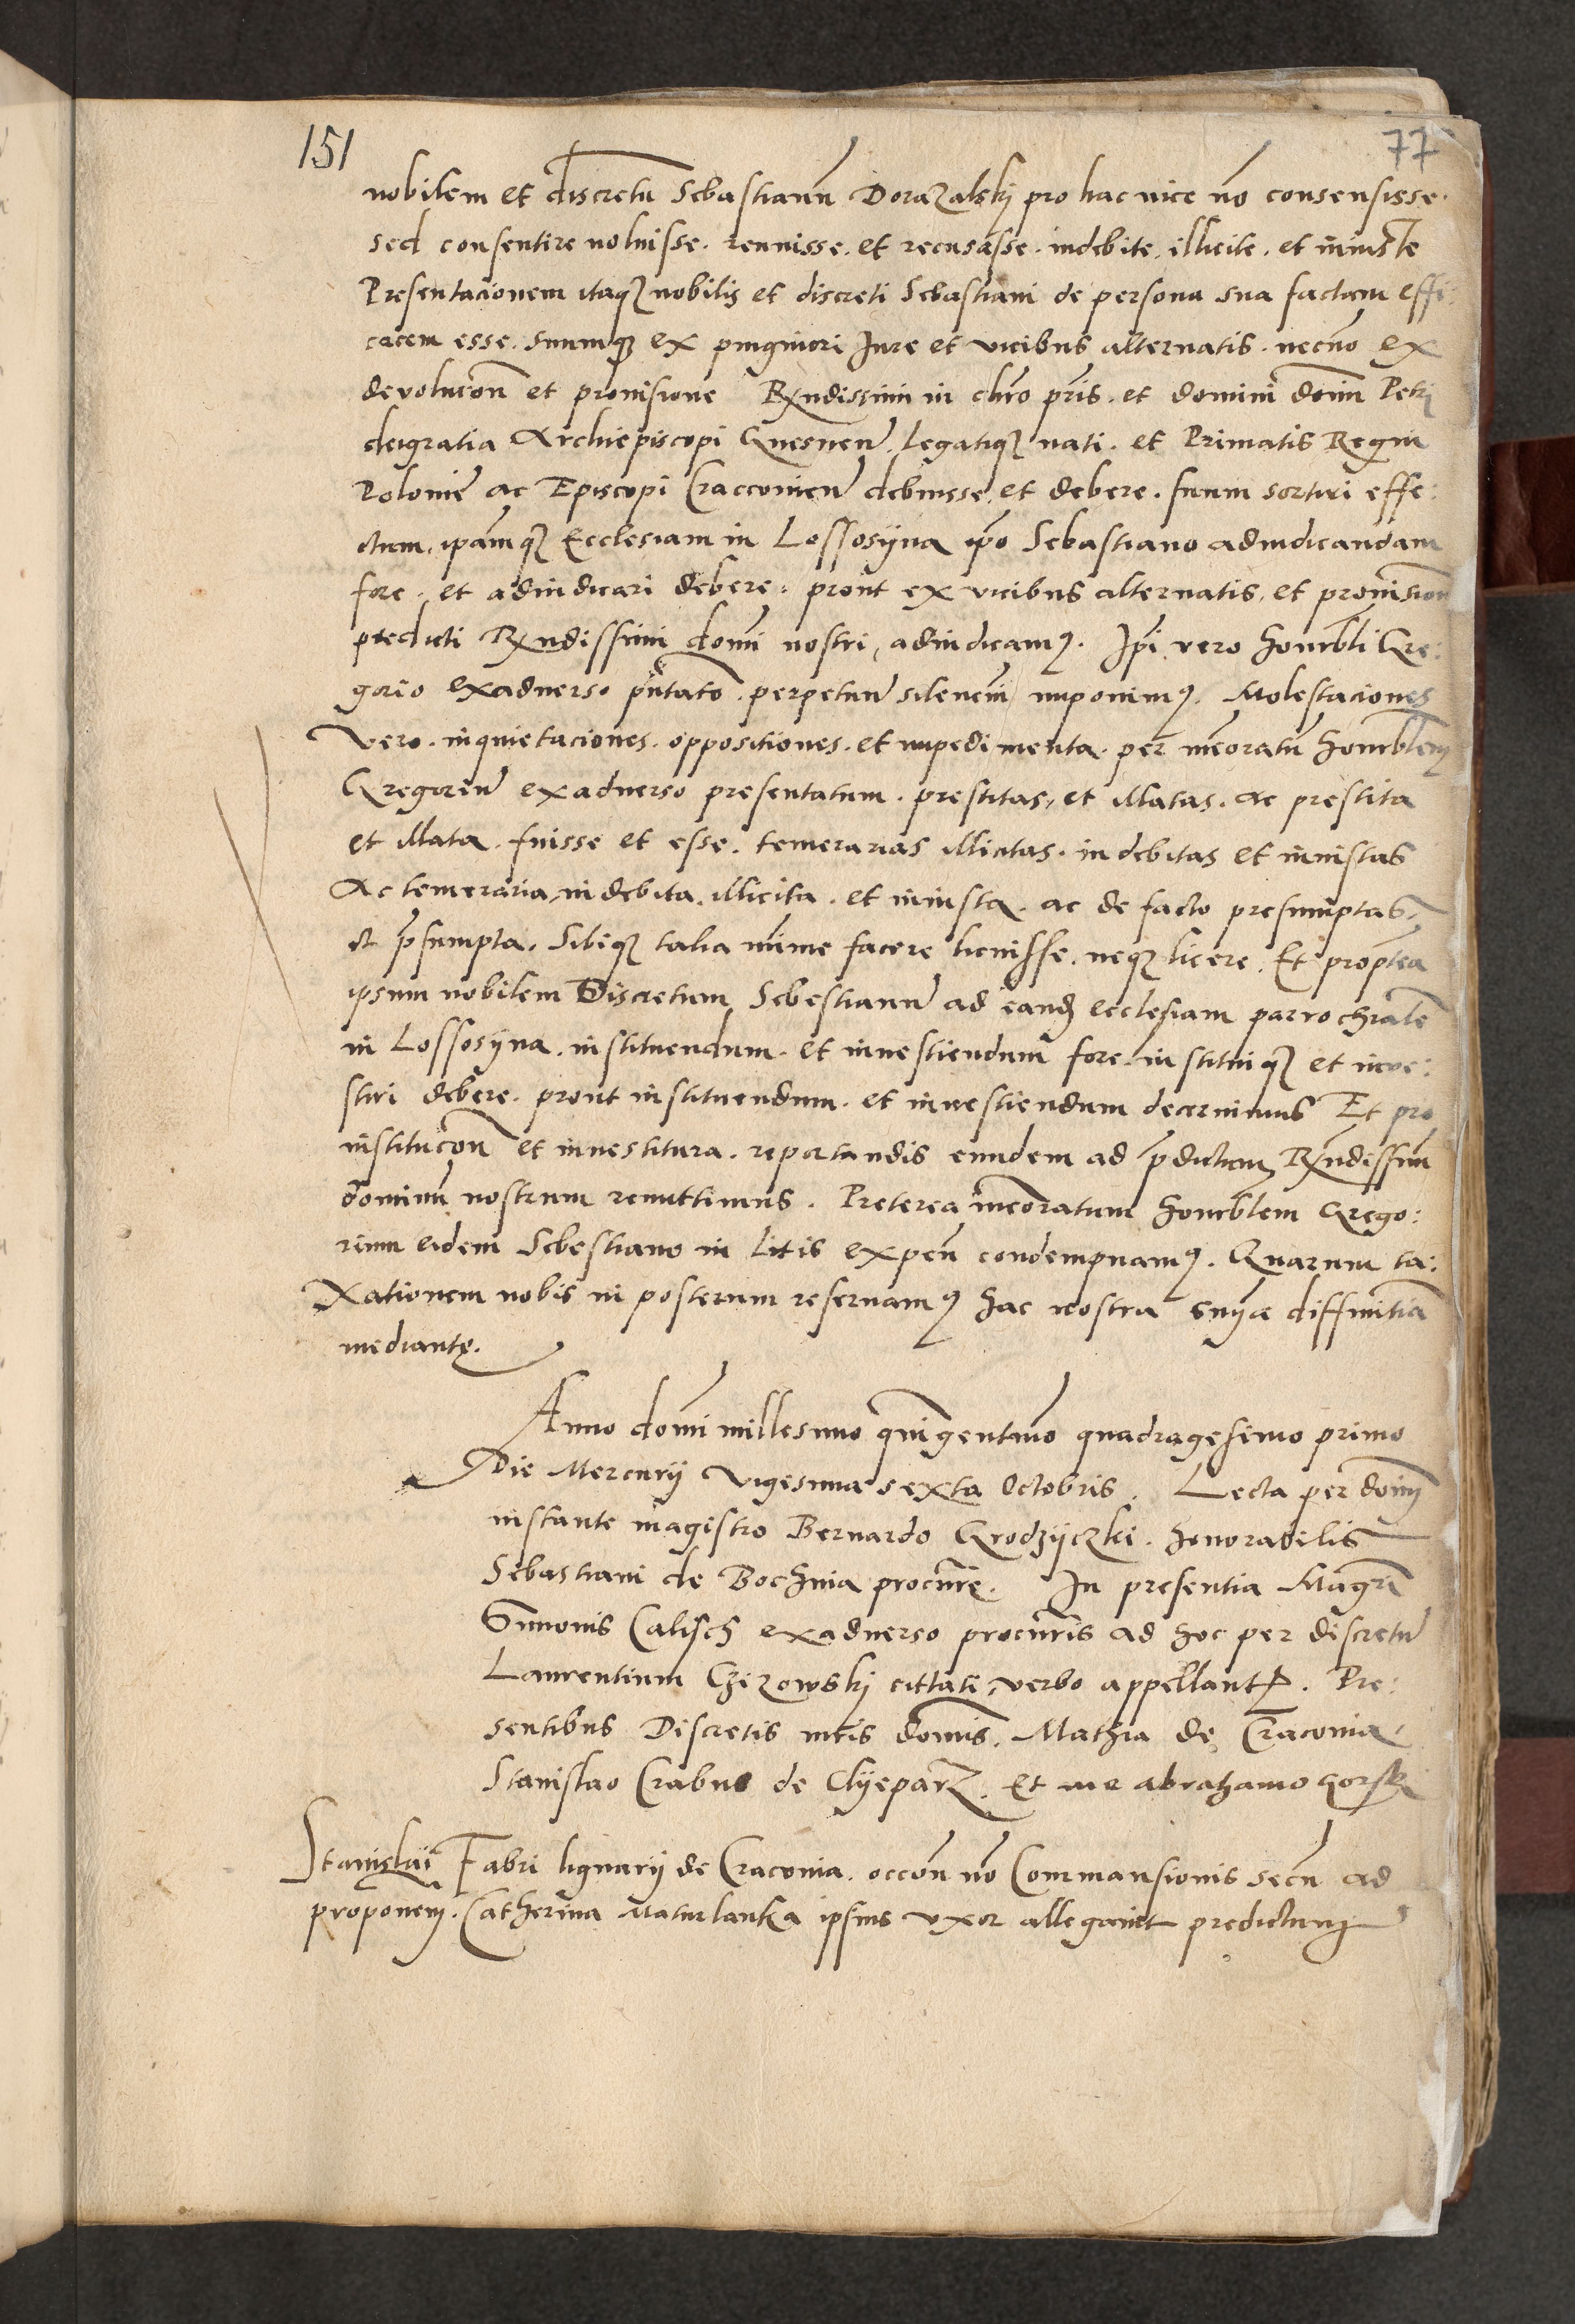 151
77
nobilem et discretū Sebastianū Dorazalskj pro hac vice nō consensisse.
sed consentire noluisse. renuisse. et recusasse. indebite. illicite. et iniuste
Presentacionem itaqz nobilis et discreti Sebastiani de persona sua factam effi:
cacem esse. suumqz ex pinguiori Jure et vicibus alternatis. necnō ex
devolucōn et prouisione Rxndissimi in chro pris. et domini dom̄ Petri
deigratia Archiepiscopi Gnesneñ. Legatiqz nati. et Primatis Regni
Poloniē ac Episcopi Cracouieñ debuisse et debere. suum sortiri effe:
ctum, ip̄amqz Ecclesiam in Lossosyna ip̄o Sebastiano adiudicandam
fore. et adiudicari debere. prout ex vicibus alternatis, et prouisioñ
predicti Rxndissimi domī nostri, adiudicamꝰ. Ip̄i vero honorbli Gre:
gorio exaduerso pn̄tato. perpetuū silenciū imponimꝰ. Molestaciones
vero. inquietaciones. oppositiones. et impedimenta. per memoratū honorblem
Gregoriū exaduerso presentatum. prestitas, et illatas. ac prestita
et illata. fuisse et esse. temerarias illicitas. indebitas et iniustas
Ac temeraria, indebita. illicita. et iniusta. ac de facto presumptas,
et p̄sumpta. Sibiqz talia minime facere licuisse. neqz licere. Et propterea
ipsum nobilem Discretum Sebestianū ad eand ecclesiam parrochialē
in Lossosyna. instituendum. et inuestiendum fore. instituiqz et inve:
stiri debere. prout instituendum. et inuestiendum decernimus Et pro
institucōn et inuestitura. reportandis eundem ad p̄dictum Rxndissim̄
dominū nostrum remittimus. Preterea meōratum honorblem Grego:
rium eidem Sebestiano in litis expeñ condempnamꝰ. Quarum ta:
xationem nobis in posterum reseruamꝰ hac nostra snīa diffinitīa
mediante.
Anno domī millesimo quīgentmo quadragesimo primo
Die Mercurij vigesima sexta Octobris. Lecta per domī
instante magistro Bernardo Grodzyczki. honorabilis
Sebastiani de Bochnia procurē. In presentia Magrī
Simonis Calisch exaduerso procuris ad hoc per discretū
Laurentium Czizowskj cittati, verbo appellantꝭ. Pre:
sentibus Discretis dom̄is. Mathia de Craconia
Stanislao Crabus de Clyeparz. et me abrahamo gorski
Stanislai Fabri lignarij de Craconia. occōn nō Commansionis secū ad
proponeñ. Catherina Maturlanka ipsius vxor allegauit predictum